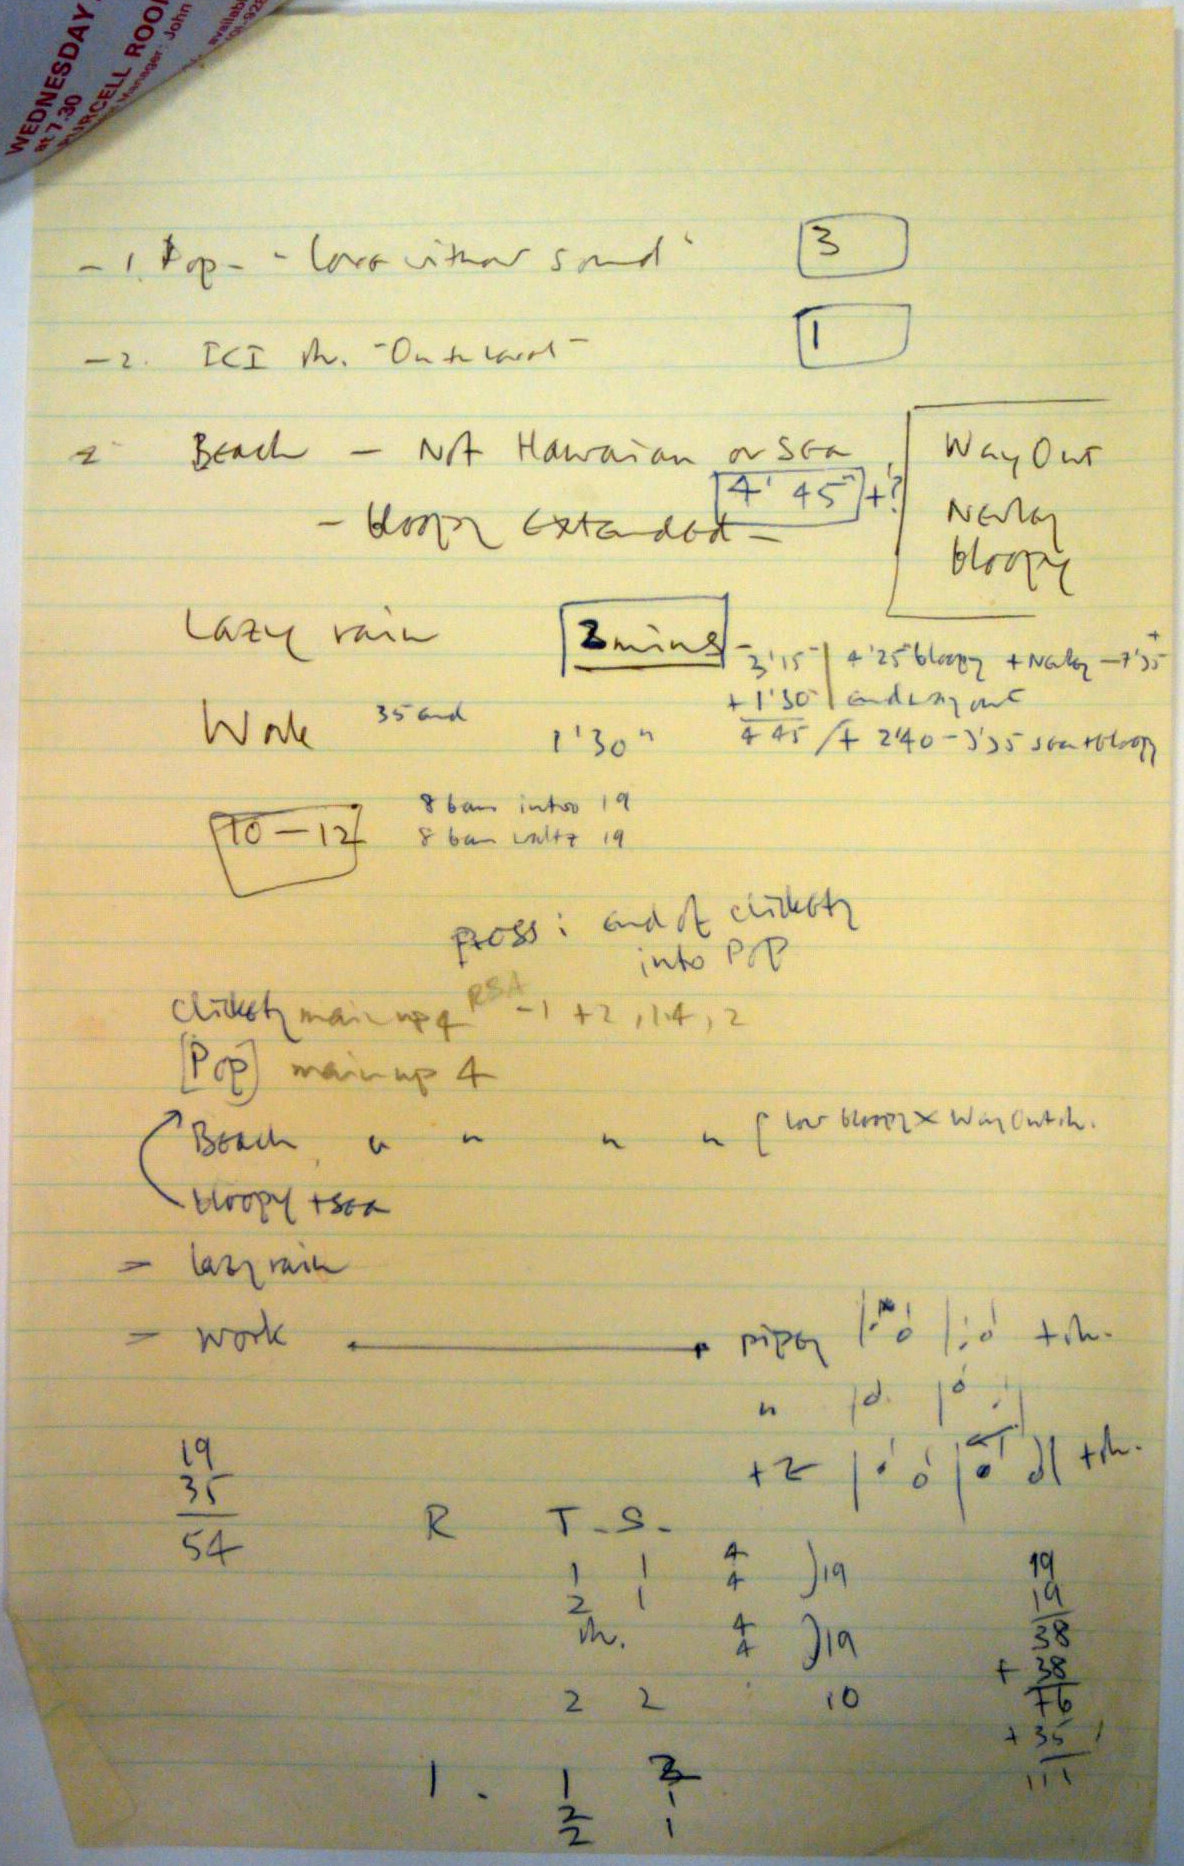 WEDNESDAY
at 7.30
PURCELL ROOM
Manager: John
availab
- 1. Pop - "Love without sound"
3
- 2. ICI rh. "On the level"
1
2 Beach - Not Hawaiian or sea
4' 45" + ?
- bloopy extended -
Way Out
Newley
bloopy
Lazy rain
2 mins
3'15" | 4'25" bloopy + Newley
+ 1'30 | end way out
4 45 / + 2'40 - 3'35 sea + bloopy
Work 35 end 1'30"
10 - 12
8 bars intro 19
8 bar waltz 19
poss: end of clickety
into Pop
Clickety main up 4 RSA -1 +2, 1.4, 2
[Pop] main up 4
Beach " " " " [low bloopy x Way Out rh.
bloopy + sea
= lazy rain
= work pipey + rh.
"
+ 2 + rh.
19
35
54
R T. S.
1 1 4
2 1 4 ) 19
rh. 4
4 ) 19
2 2 10
19
19
38
+ 38
76
+ 35
111
1. 1 3
2 1
2 1